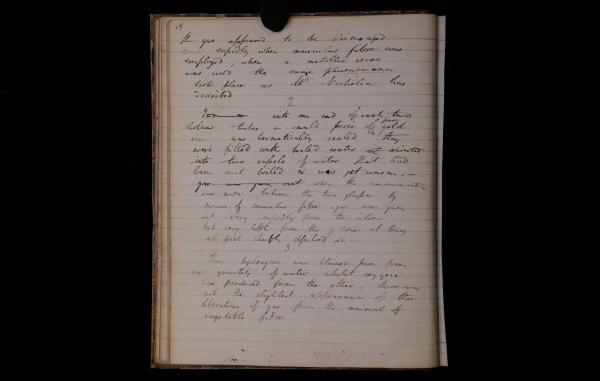 the gas appeared to be disengaged
rapidly when muscular fibre was
employed, when a metallic
was used the same phenomenon
took place as Mr Nicholson has
described
2
into one end of each two
hollow tubes a small piece of pure gold
was hermetically sealed they
were filled with boiled water &
into two vessels of water that had
been not boiled & was yet warm. —
gas was given out when the communication
was made between the two glasses by
means of muscular fibre, gas was given
out very rapidly from the silver
but very little from the it being
at first absorbed &c —
3
hydrogene was obtained pure from
one quantity of water whilst oxygene
was produced from the other, there was
not the slightest appearance of the
liberation of gas from the animal or
vegetable fibre